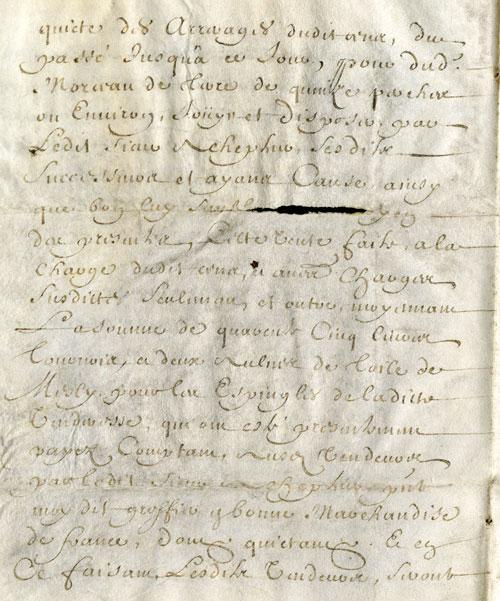 quicte des Arrerages dudit cens, du
passé Jusqu'a ce Jour, pour dud.
Morceau de Terre de quinze perches
ou Environ, Joüyr et disposer par
Ledit sieur ses dits
successeurs et ayans Cause ainsy
que bon luy
des presentes, Cette Vente faite a la
Charge dudit cens, Charges
susdittes seulement, et outre moyennant
La somme de quarente Cinq livres
tournois, et deux Aulnes de toile de
pour les Espingles de la ditte
Venderesse, qui ont esté presentement
payez Comptant, Ausd. Vendeurs
par ledit sieur
dit greffier bonne Marchandise
de france, Dont quictance. Et en
Ce faisant, Lesdits Vendeurs, se sont